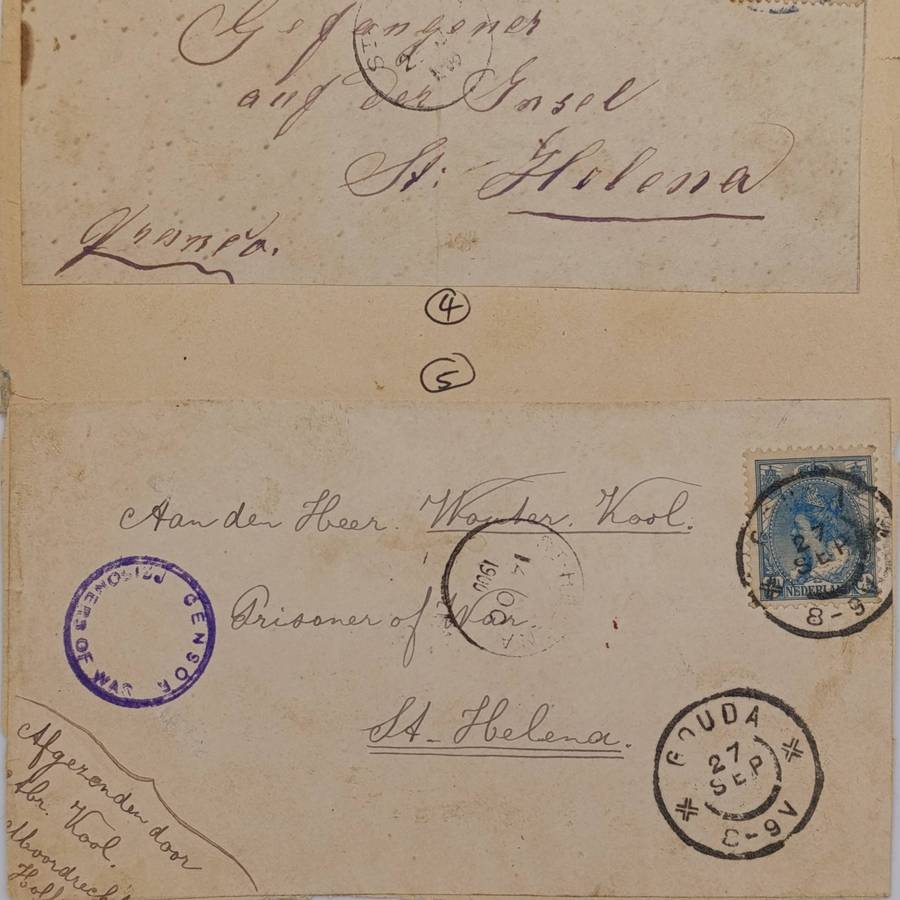 Gefangener
auf der Insel
St: Helena
Franco.
4
5
Aan den Heer. Wouter. Kool.
Prisoner of War.
St-Helena.
PRISONER OF WAR
CENSOR
HELENA
OC
14
1900
27
SEP
8-9
NEDERLAND
GOUDA
27
SEP
8-9V
Afgezonden door
Abr. Kool.
Moordrecht
Holl